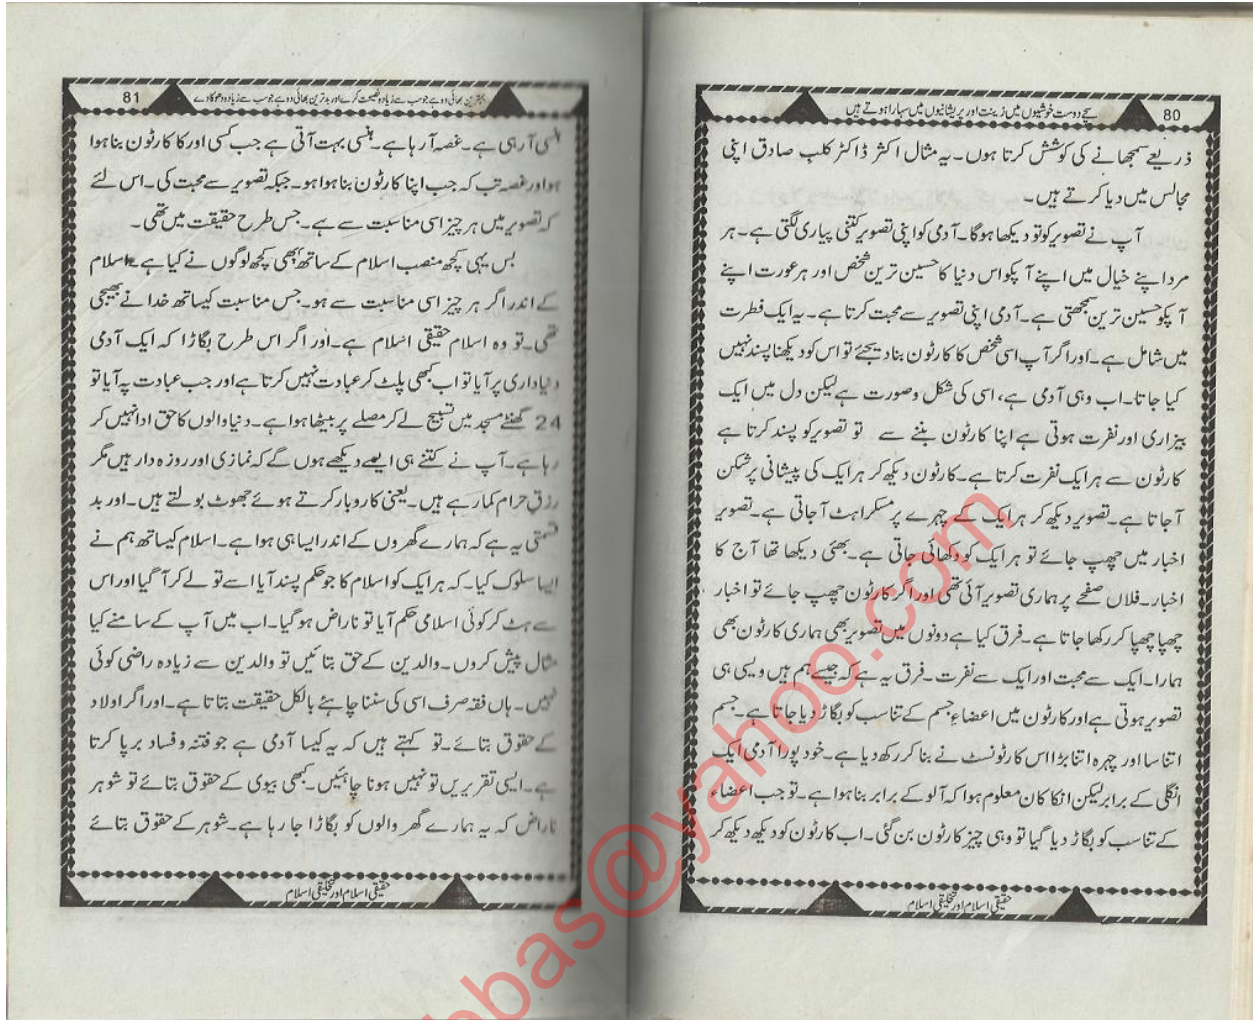 80
سچے دوست خوشیوں میں زینت اور پریشانیوں میں سہارا ہوتے ہیں
ذریعے سمجھانے کی کوشش کرتا ہوں۔ یہ مثال اکثر ڈاکٹر کلب صادق اپنی
مجالس میں دیا کرتے ہیں۔
آپ نے تصویر کو تو دیکھا ہوگا۔ آدمی کو اپنی تصویر کتنی پیاری لگتی ہے۔ ہر
مرد اپنے خیال میں اپنے آپکو اس دنیا کا حسین ترین شخص اور ہر عورت اپنے
آپکو حسین ترین سمجھتی ہے۔ آدمی اپنی تصویر سے محبت کرتا ہے۔ یہ ایک فطرت
میں شامل ہے۔ اور اگر آپ اسی شخص کا کارٹون بنا دیجئے تو اس کو دیکھنا پسند نہیں
کیا جاتا۔ اب وہی آدمی ہے، اسی کی شکل و صورت ہے لیکن دل میں ایک
بیزاری اور نفرت ہوتی ہے اپنا کارٹون بننے سے تو تصویر کو پسند کرتا ہے
کارٹون سے ہر ایک نفرت کرتا ہے۔ کارٹون دیکھ کر ہر ایک کی پیشانی پر شکن
آجاتا ہے۔ تصویر دیکھ کر ہر ایک کے چہرے پر مسکراہٹ آجاتی ہے۔ تصویر
اخبار میں چھپ جائے تو ہر ایک کو دکھائی جاتی ہے۔ بھئی دیکھا تھا آج کا
اخبار۔ فلاں صفحے پر ہماری تصویر آئی تھی اور اگر کارٹون چھپ جائے تو اخبار
چھپا چھپا کر رکھا جاتا ہے۔ فرق کیا ہے دونوں میں تصویر بھی ہماری کارٹون بھی
ہمارا۔ ایک سے محبت اور ایک سے نفرت۔ فرق یہ ہے کہ جیسے ہم ہیں ویسی ہی
تصویر ہوتی ہے اور کارٹون میں اعضاءِ جسم کے تناسب کو بگاڑ دیا جاتا ہے۔ جسم
اتنا سا اور چہرہ اتنا بڑا اس کارٹونسٹ نے بنا کر رکھ دیا ہے۔ خود پورا آدمی ایک
انگلی کے برابر لیکن انکا کان معلوم ہوا کہ آلو کے برابر بنا ہوا ہے۔ تو جب اعضاء
کے تناسب کو بگاڑ دیا گیا تو وہی چیز کارٹون بن گئی۔ اب کارٹون کو دیکھ دیکھ کر
حقیقی اسلام اور تخلیقی اسلام
81
بہترین بھائی وہ ہے جو سب سے زیادہ نصیحت کرے اور بدترین بھائی وہ ہے جو سب سے زیادہ دھوکا دے
ہنسی آرہی ہے۔ غصہ آرہا ہے۔ ہنسی بہت آتی ہے جب کسی اور کا کارٹون بنا ہوا
ہو اور غصہ تب کہ جب اپنا کارٹون بنا ہوا ہو۔ جبکہ تصویر سے محبت کی۔ اس لئے
کہ تصویر میں ہر چیز اسی مناسبت سے ہے۔ جس طرح حقیقت میں تھی۔
بس یہی کچھ منصب اسلام کے ساتھ بھی کچھ لوگوں نے کیا ہے۔ اسلام
کے اندر اگر ہر چیز اسی مناسبت سے ہو۔ جس مناسبت کیساتھ خدا نے بھیجی
تھی۔ تو وہ اسلام حقیقی اسلام ہے۔ اور اگر اس طرح بگاڑا کہ ایک آدمی
دنیاداری پر آیا تو اب کبھی پلٹ کر عبادت نہیں کرتا ہے اور جب عبادت پہ آیا تو
24 گھنٹے مسجد میں تسبیح لے کر مصلے پر بیٹھا ہوا ہے۔ دنیا والوں کا حق ادا نہیں کر
رہا ہے۔ آپ نے کتنے ہی ایسے دیکھے ہوں گے کہ نمازی اور روزہ دار ہیں مگر
رزقِ حرام کما رہے ہیں۔ یعنی کاروبار کرتے ہوئے جھوٹ بولتے ہیں۔ اور بد
قسمتی یہ ہے کہ ہمارے گھروں کے اندر ایسا ہی ہوا ہے۔ اسلام کیساتھ ہم نے
ایسا سلوک کیا۔ کہ ہر ایک کو اسلام کا جو حکم پسند آیا اسے تو لے کر آ گیا اور اس
سے ہٹ کر کوئی اسلامی حکم آیا تو ناراض ہوگیا۔ اب میں آپ کے سامنے کیا
مثال پیش کروں۔ والدین کے حق بتائیں تو والدین سے زیادہ راضی کوئی
نہیں۔ ہاں فقہ صرف اسی کی سننا چاہئے بالکل حقیقت بتاتا ہے۔ اور اگر اولاد
کے حقوق بتائے۔ تو کہتے ہیں کہ یہ کیسا آدمی ہے جو فتنہ و فساد برپا کرتا
ہے۔ ایسی تقریریں تو نہیں ہونا چاہئیں۔ کبھی بیوی کے حقوق بتائے تو شوہر
ناراض کہ یہ ہمارے گھر والوں کو بگاڑا جا رہا ہے۔ شوہر کے حقوق بتائے
حقیقی اسلام اور تخلیقی اسلام
abbas@yahoo.com